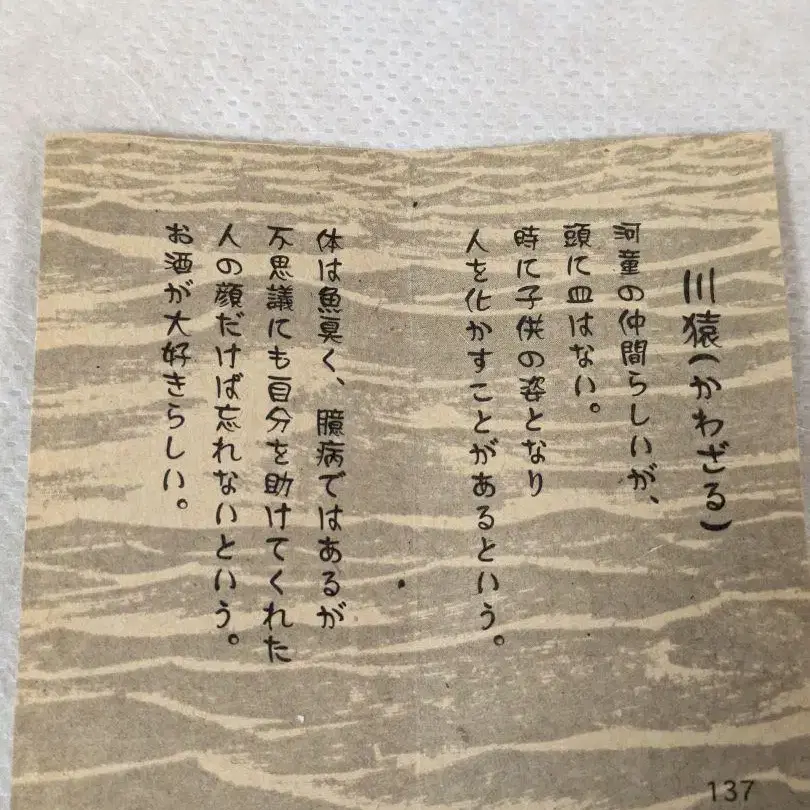 川猿(かわざる)
河童の仲間らしいが、
頭に皿はない。
時に子供の姿となり
人を化かすことがあるという。
体は魚臭く、臆病ではあるが
不思議にも自分を助けてくれた
人の顔だけば忘れないという。
お酒が大好きらしい。
137